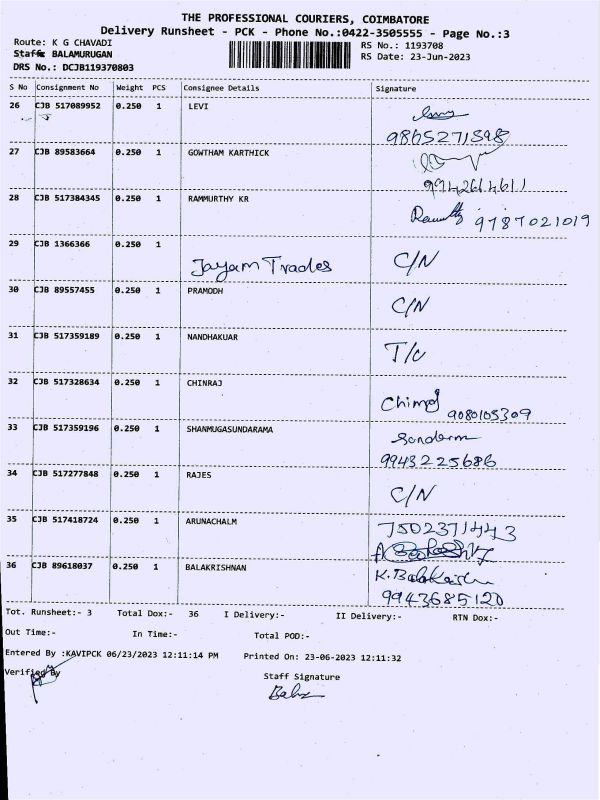 THE PROFESSIONAL COURIERS, COIMBATORE
Delivery Runsheet - PCK - Phone No.:0422-3505555 - Page No.:3
Route: K G CHAVADI RS No.: 1193708
Staff: BALAMURUGAN RS Date: 23-Jun-2023
DRS No.: DCJB119370803
S No Consignment No Weight PCS Consignee Details Signature
26 CJB 517089952 0.250 1 LEVI
9865271598
27 CJB 89583664 0.250 1 GOWTHAM KARTHICK
9942614611
28 CJB 517384345 0.250 1 RAMMURTHY KR
9787021019
29 CJB 1366366 0.250 1
Jayam Trades C/N
30 CJB 89557455 0.250 1 PRAMODH
C/N
31 CJB 517359189 0.250 1 NANDHAKUAR
T/C
32 CJB 517328634 0.250 1 CHINRAJ
9080105309
33 CJB 517359196 0.250 1 SHANMUGASUNDARAMA
9943225686
34 CJB 517277848 0.250 1 RAJES
C/N
35 CJB 517418724 0.250 1 ARUNACHALM
7502371443
36 CJB 89618037 0.250 1 BALAKRISHNAN
9943685120
Tot. Runsheet:- 3 Total Dox:- 36 I Delivery:- II Delivery:- RTN Dox:-
Out Time:- In Time:- Total POD:-
Entered By :KAVIPCK 06/23/2023 12:11:14 PM Printed On: 23-06-2023 12:11:32
Verified By Staff Signature